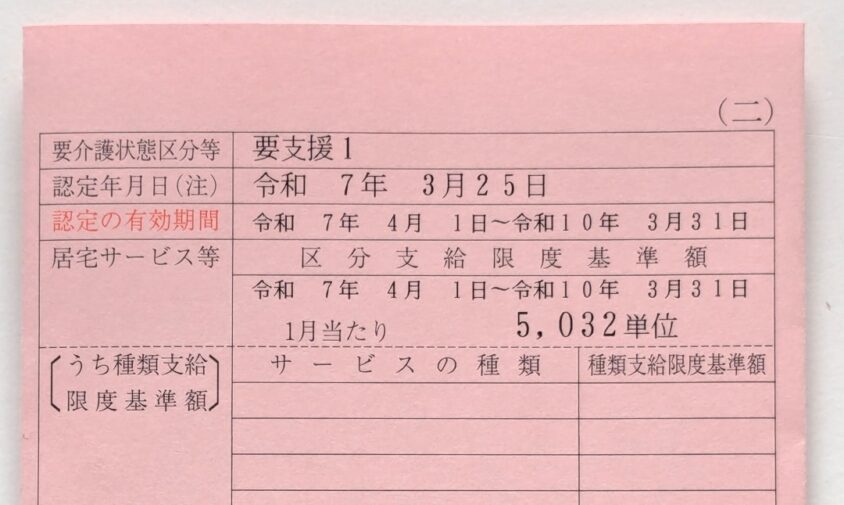 （二）
要介護状態区分等 要支援１
認定年月日（注） 令和　７年　３月２５日
認定の有効期間 令和　７年　４月　１日～令和１０年　３月３１日
居宅サービス等 区分支給限度基準額
令和　７年　４月　１日～令和１０年　３月３１日
1月当たり 5,032単位
うち種類支給限度基準額 サービスの種類 種類支給限度基準額